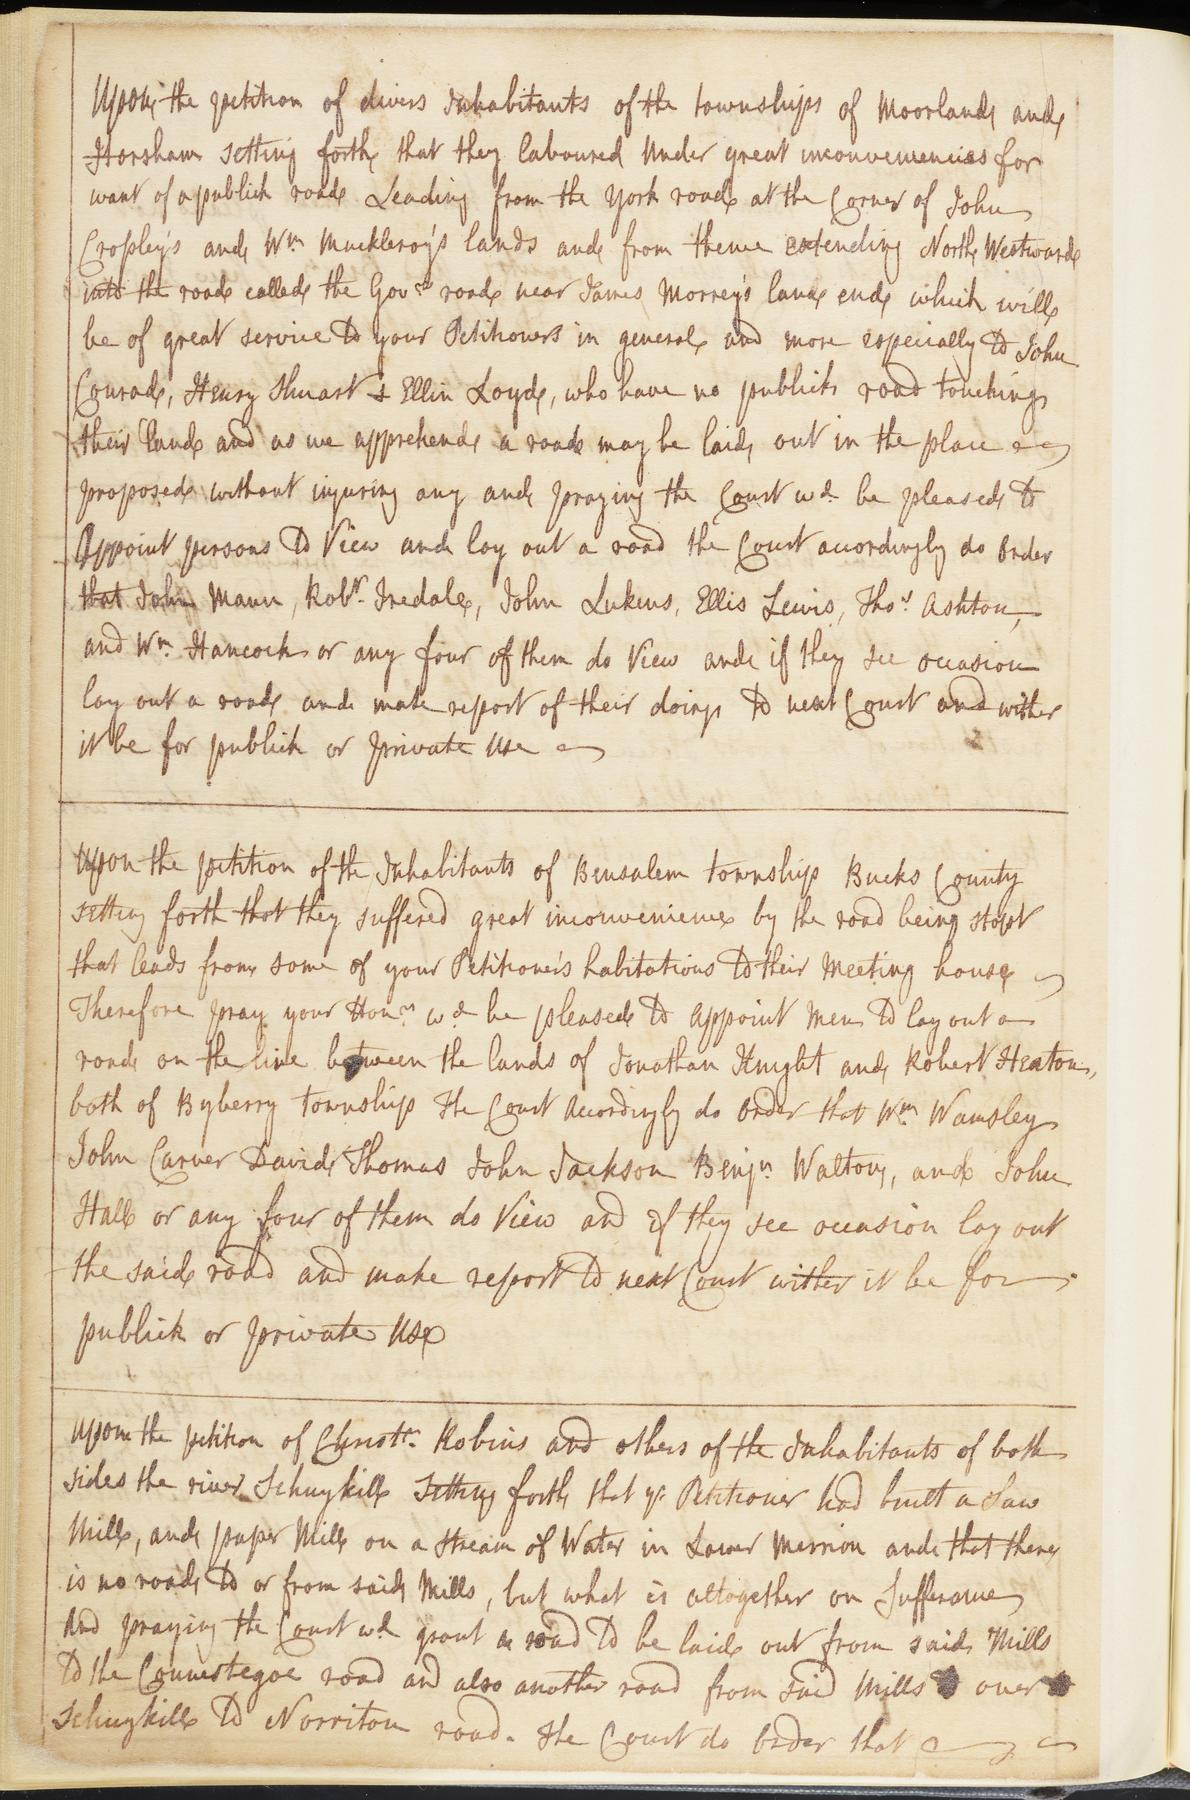 Upon the petition of divers Inhabitants of the townships of Moorland and
Horsham setting forth that they laboured Under great inconveniencies for
want of a publick road Leading from the York road at the Corner of John
Cropley's and Wm Muckleroy's lands and from thence extending North Westward
into the road called the Govrs road near James Morrey's lane end which will
be of great service to your Petitioners in general and more especially to John
Conrad, Henry Shuart & Ellin Loyd, who have no publick road touching
their land and as we apprehend a road may be laid out in the place
proposed without injuring any and praying the Court wd be pleased to
Appoint persons to View and lay out a road the Court accordingly do Order
that John Mann, Robt. Iredale, John Lukens, Ellis Lewis, Thos Ashton,
and Wm. Hancock or any four of them do View and if they see occasion
lay out a road and make report of their doings to next Court and wither
it be for publick or private Use
Upon the petition of the Inhabitants of Bensalem township Bucks County
setting forth that they suffered great inconvenience by the road being stopt
that leads from some of your Petitioners habitations to their Meeting house
Therefore pray your Honrs wd be pleased to Appoint Men to lay out a
road on the line between the lands of Jonathan Knight and Robert Heaton,
both of Byberry township The Court Accordingly do Order that Wm Wamsley
John Carver David Thomas John Jackson Benjn. Walton, and John
Hall or any four of them do View and if they see occasion lay out
the said road and make report to next Court wither it be for
publick or private Use
Upon the petition of Christr. Robins and others of the Inhabitants of both
sides the river Schuykill Setting forth that yr Petitioner had built a Saw
Mill, and paper Mill on a Stream of Water in Lower Merrion and that there
is no road to or from said Mills, but what is altogether on Sufferance
And praying the Court wd grant a road to be laid out from said Mills
to the Connestogoe road and also another road from said Mills over
Schuykill to Norriton road. The Court do Order that